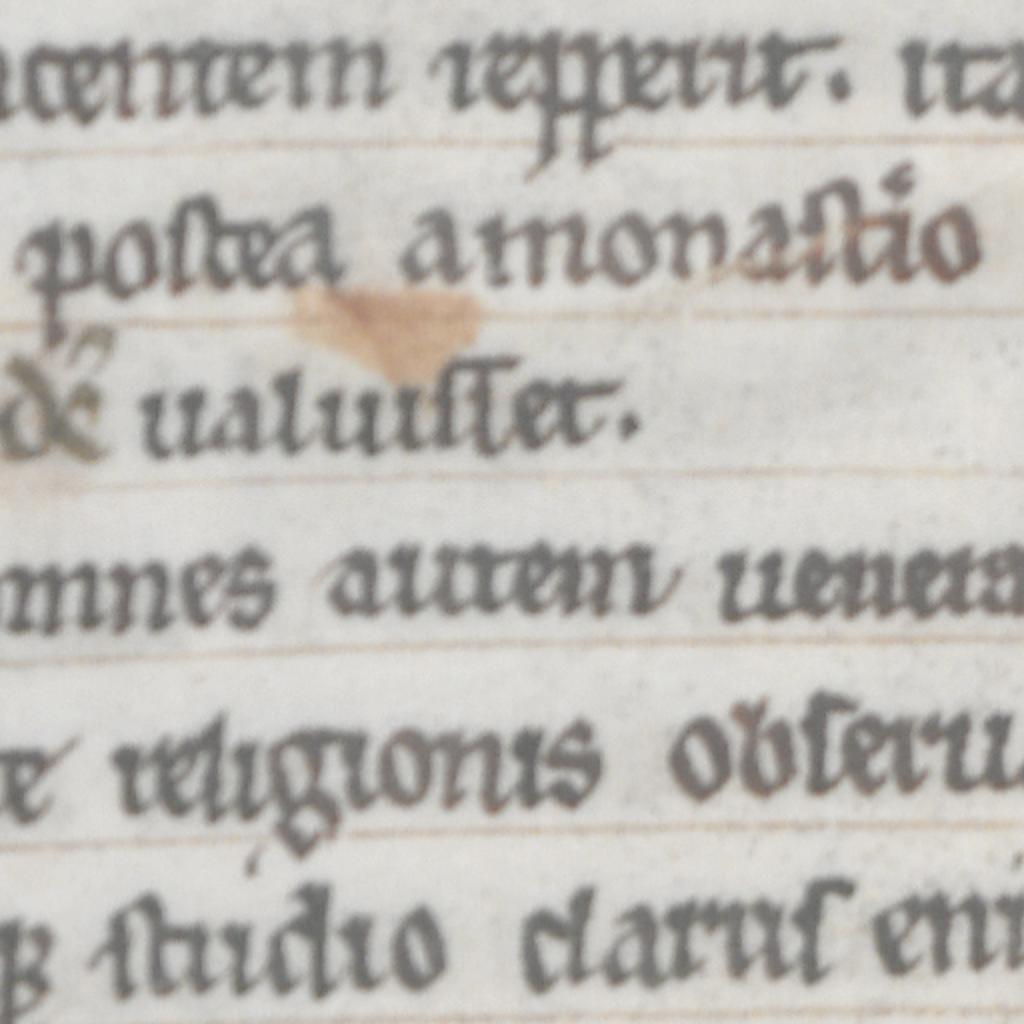 centem repperit. ita
postea a monastio
de ualuisset.
mnes autem uenera
e religionis obseru
studio clarus eni